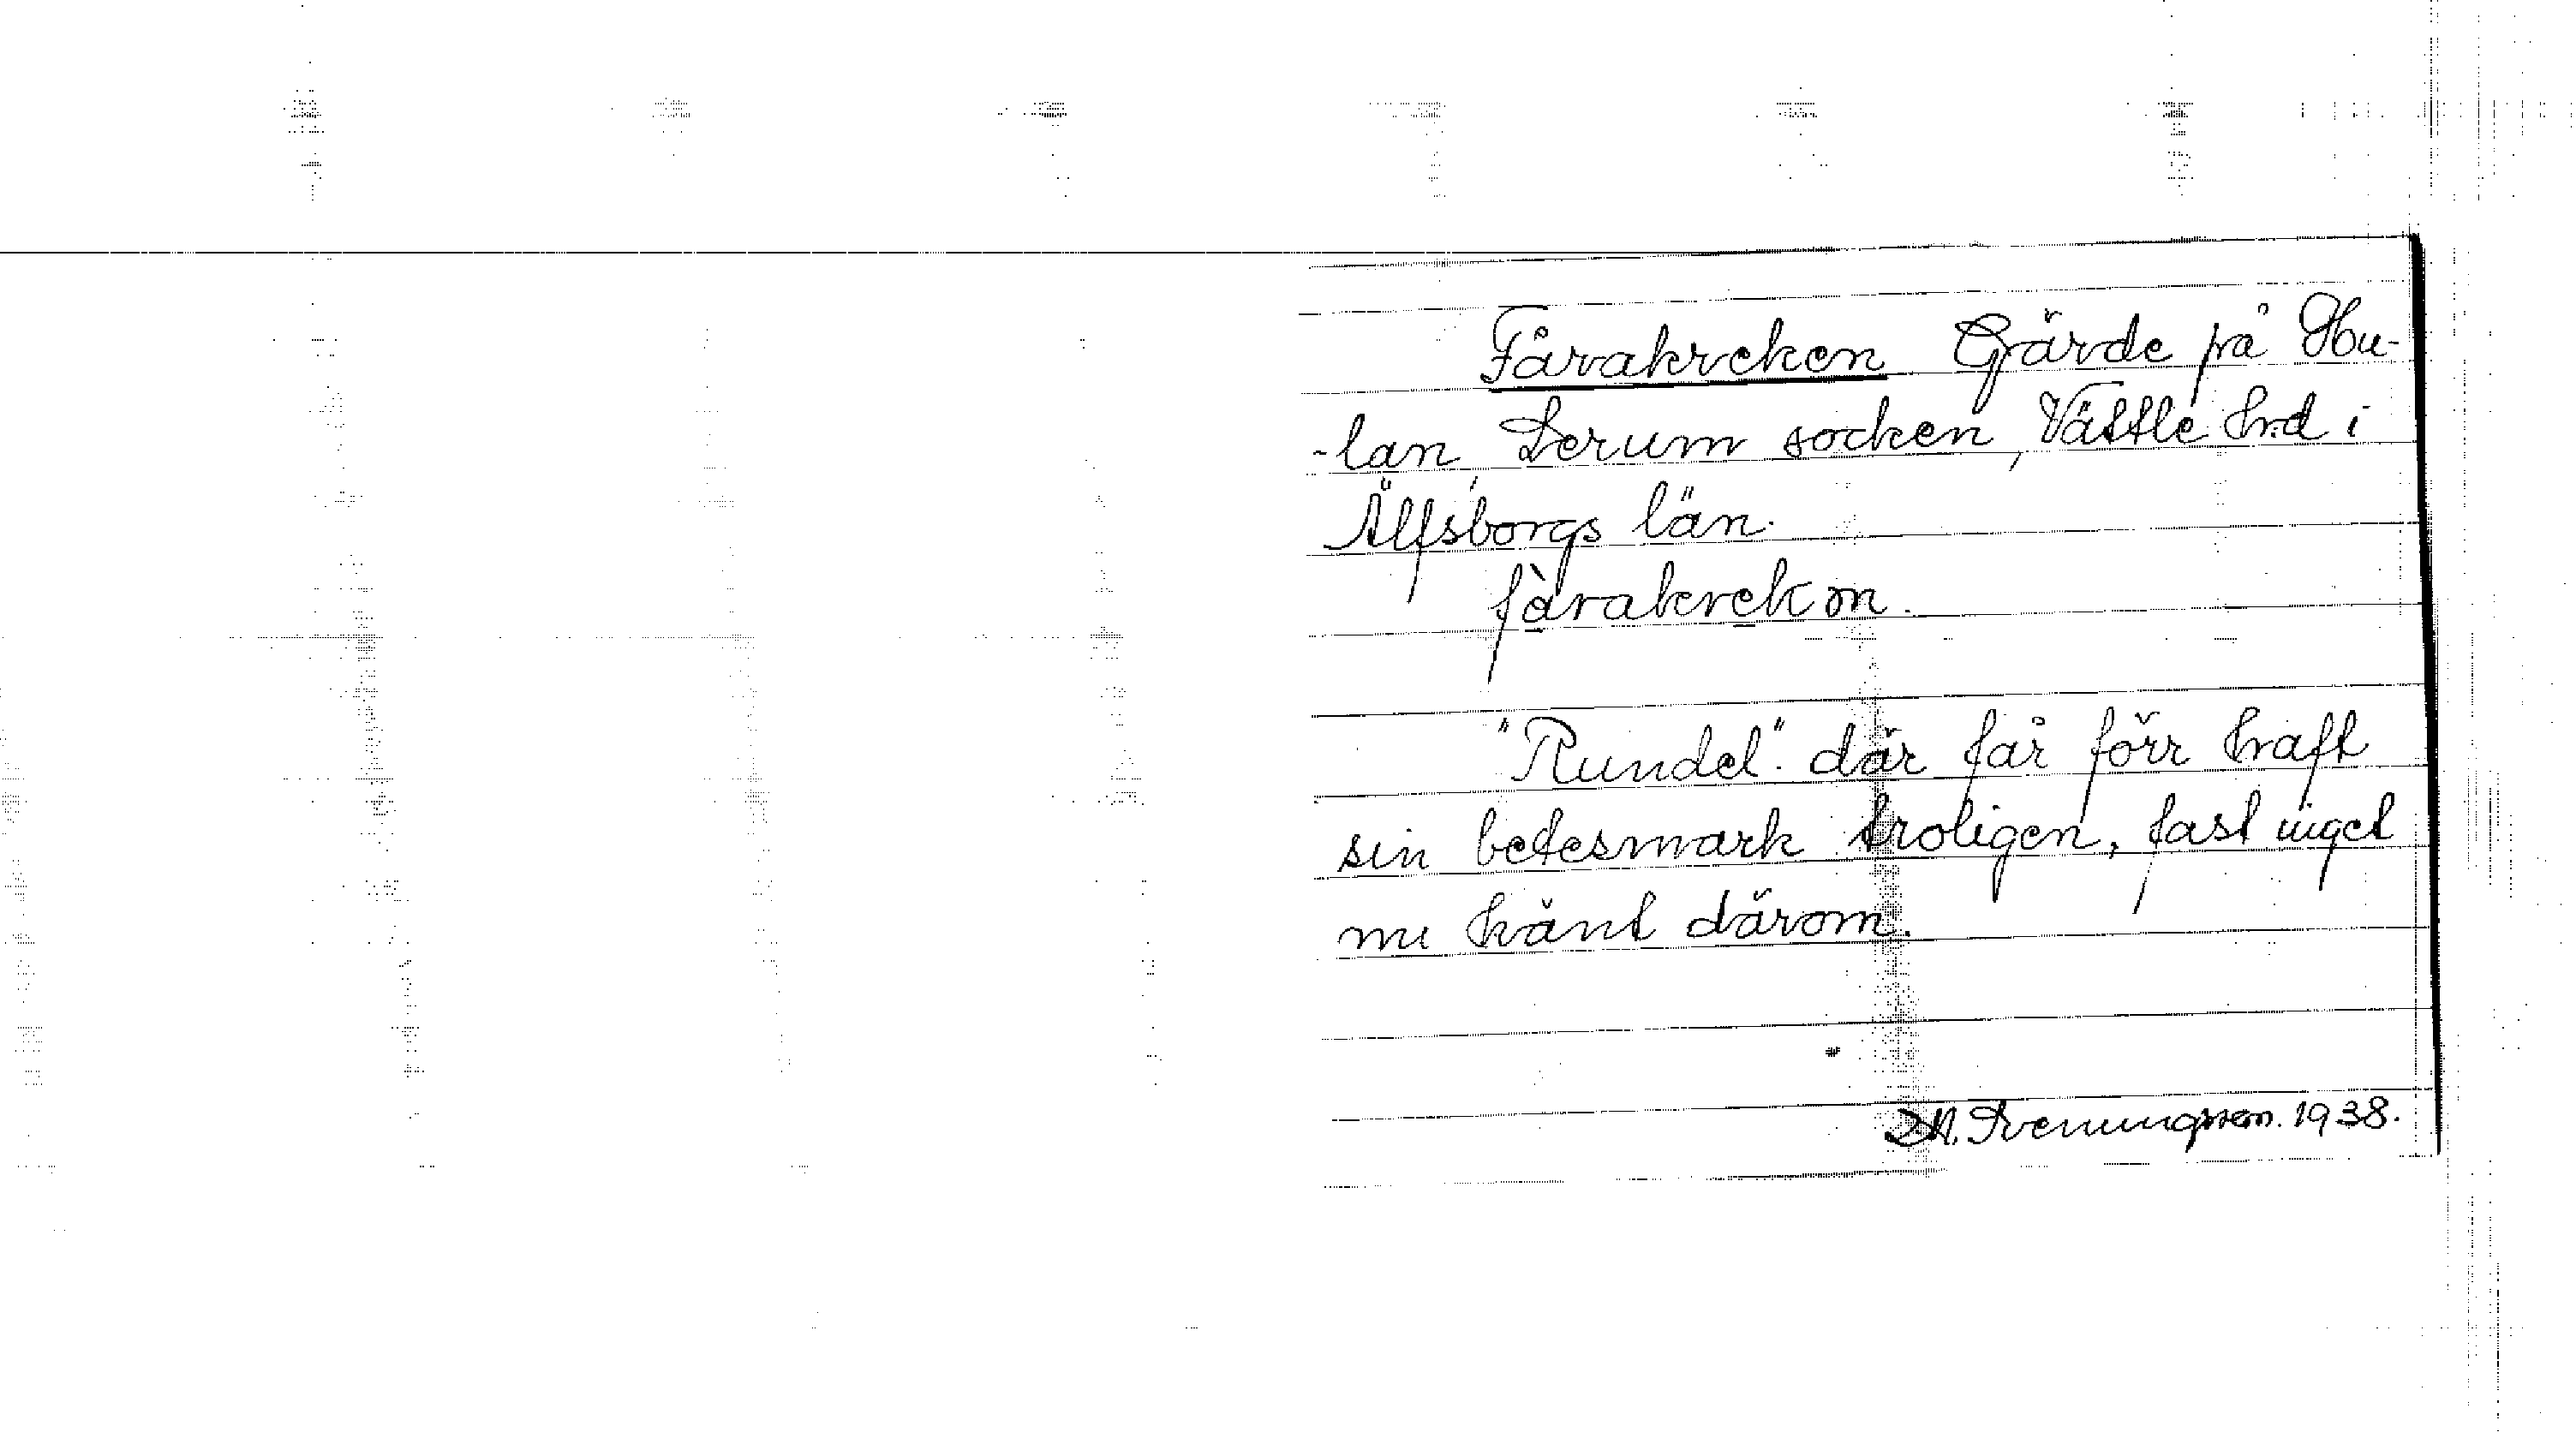 Fårakreken Gärde på Hu-
-lan, Lerum socken, Vättle hrd i
Älfsborgs län.
fàrakrekɷn.
"Rundel". där får förr haft
sin betesmark troligen, fast inget
nu känt därom.
Svenungsson. 1938.